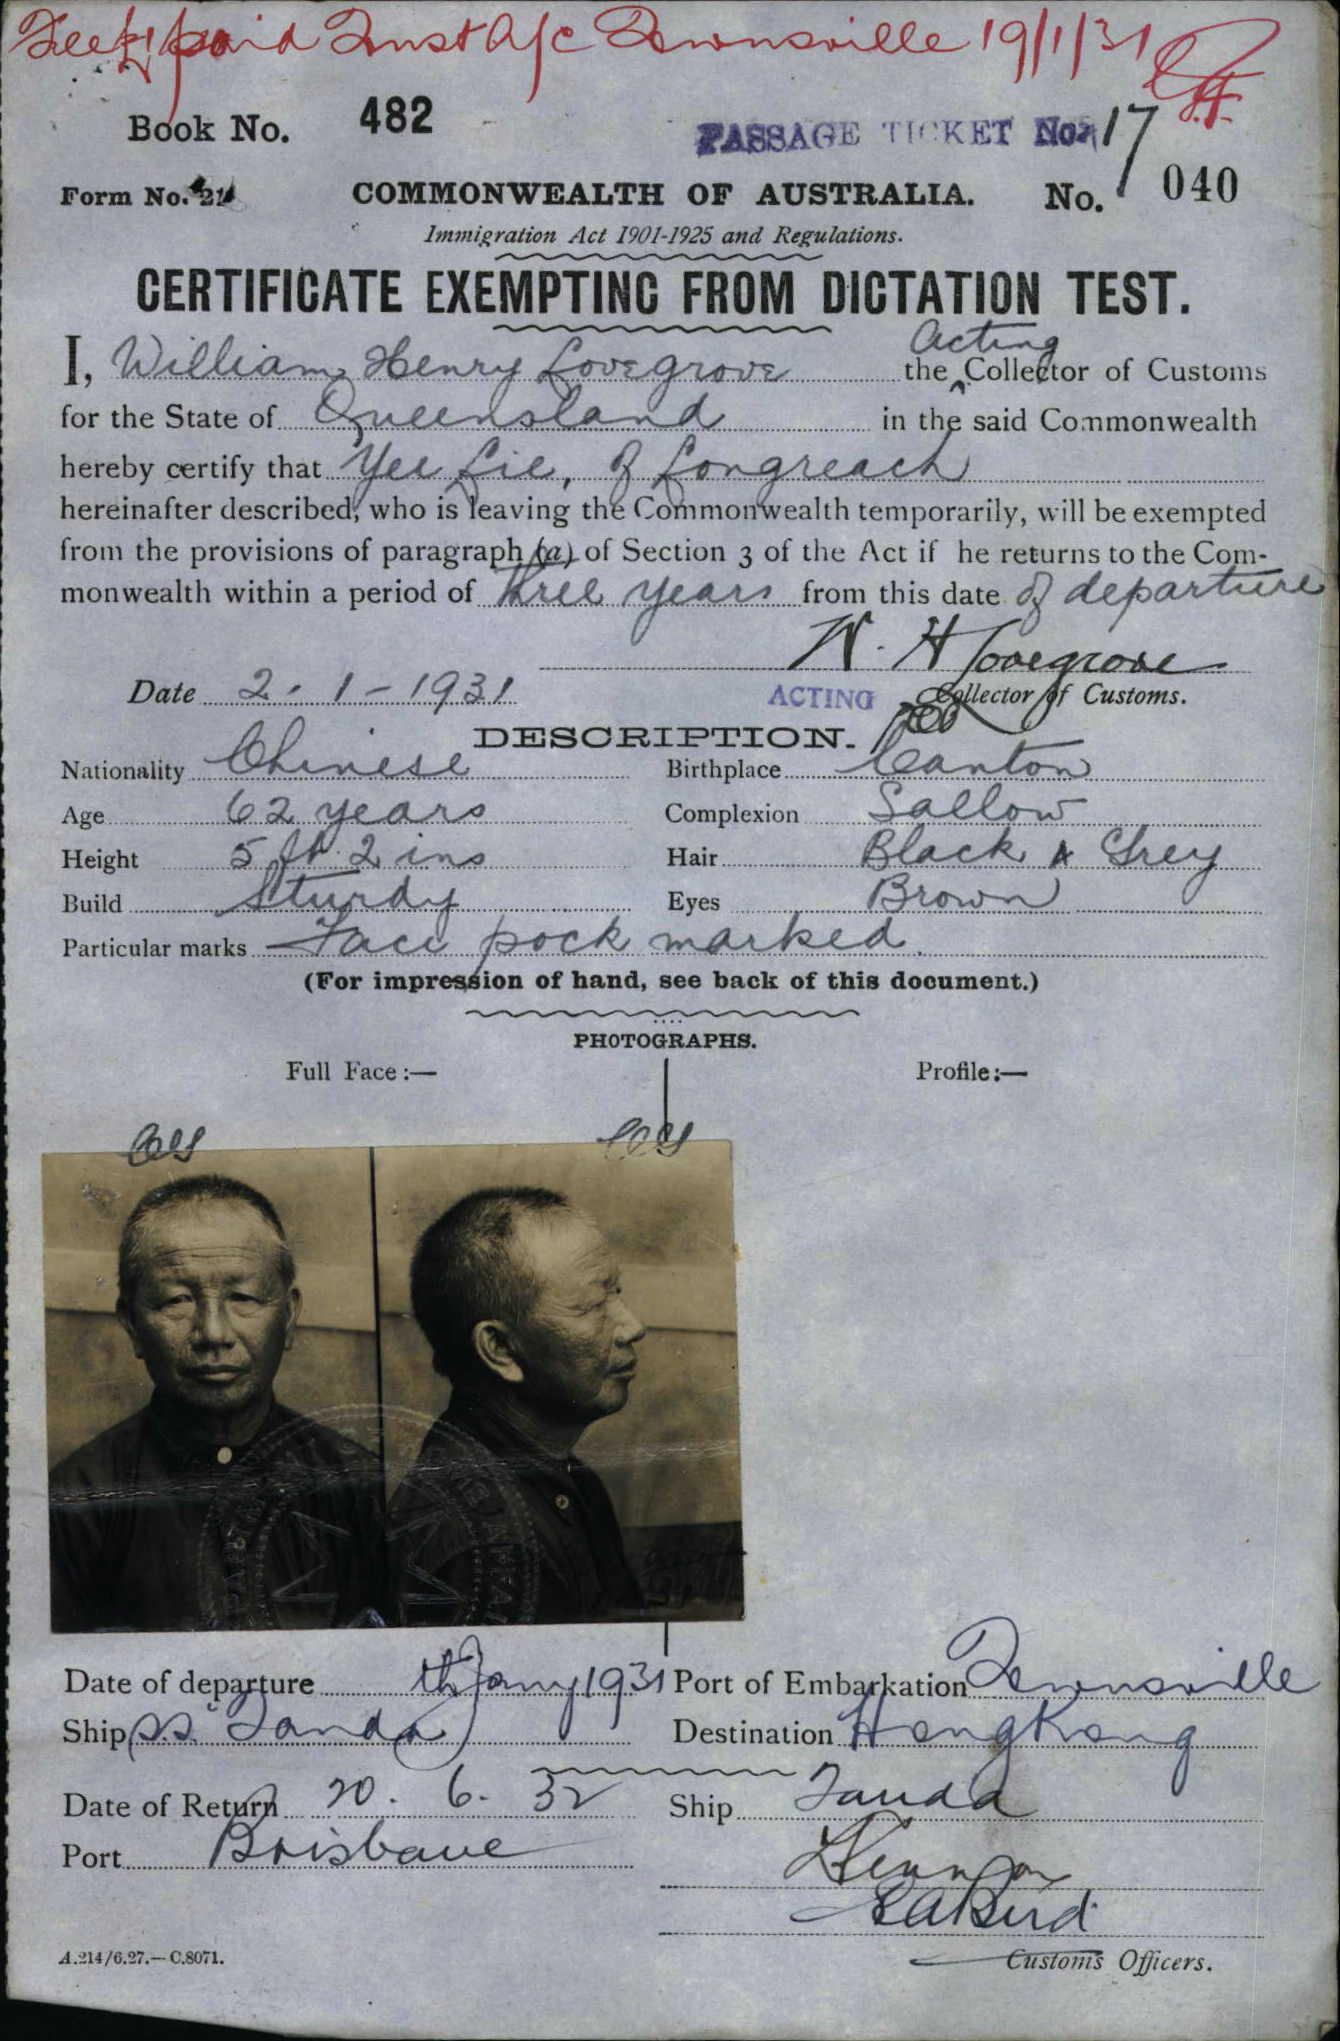 Fee £1 paid Trust A/c Townsville 19/1/31
Book No. 482
PASSAGE TICKET No. 17
Form No. 21
COMMONWEALTH OF AUSTRALIA. No. 040
Immigration Act 1901-1925 and Regulations.
CERTIFICATE EXEMPTING FROM DICTATION TEST.
Acting
I, William Henry Lovegrove the Collector of Customs
for the State of Queensland in the said Commonwealth
hereby certify that Yee Lie, of Longreach
hereinafter described, who is leaving the Commonwealth temporarily, will be exempted
from the provisions of paragraph (a) of Section 3 of the Act if he returns to the Com-
monwealth within a period of three years from this date of departure
W. H Lovegrove
Date 2-1-1931 ACTING Collector of Customs.
DESCRIPTION.
Nationality Chinese Birthplace Canton
Age 62 years Complexion Sallow
Height 5 ft 2 ins Hair Black & Grey
Build Sturdy Eyes Brown
Particular marks Face pock marked.
(For impression of hand, see back of this document.)
PHOTOGRAPHS.
Full Face:— Profile:—
Date of departure th Jany 1931 Port of Embarkation Townsville
Ship S.S. Tanda Destination Hong Kong
Date of Return 20. 6. 32 Ship Tanda
Port Brisbane
EABird
A.214/6.27.—C.8071.
Customs Officers.